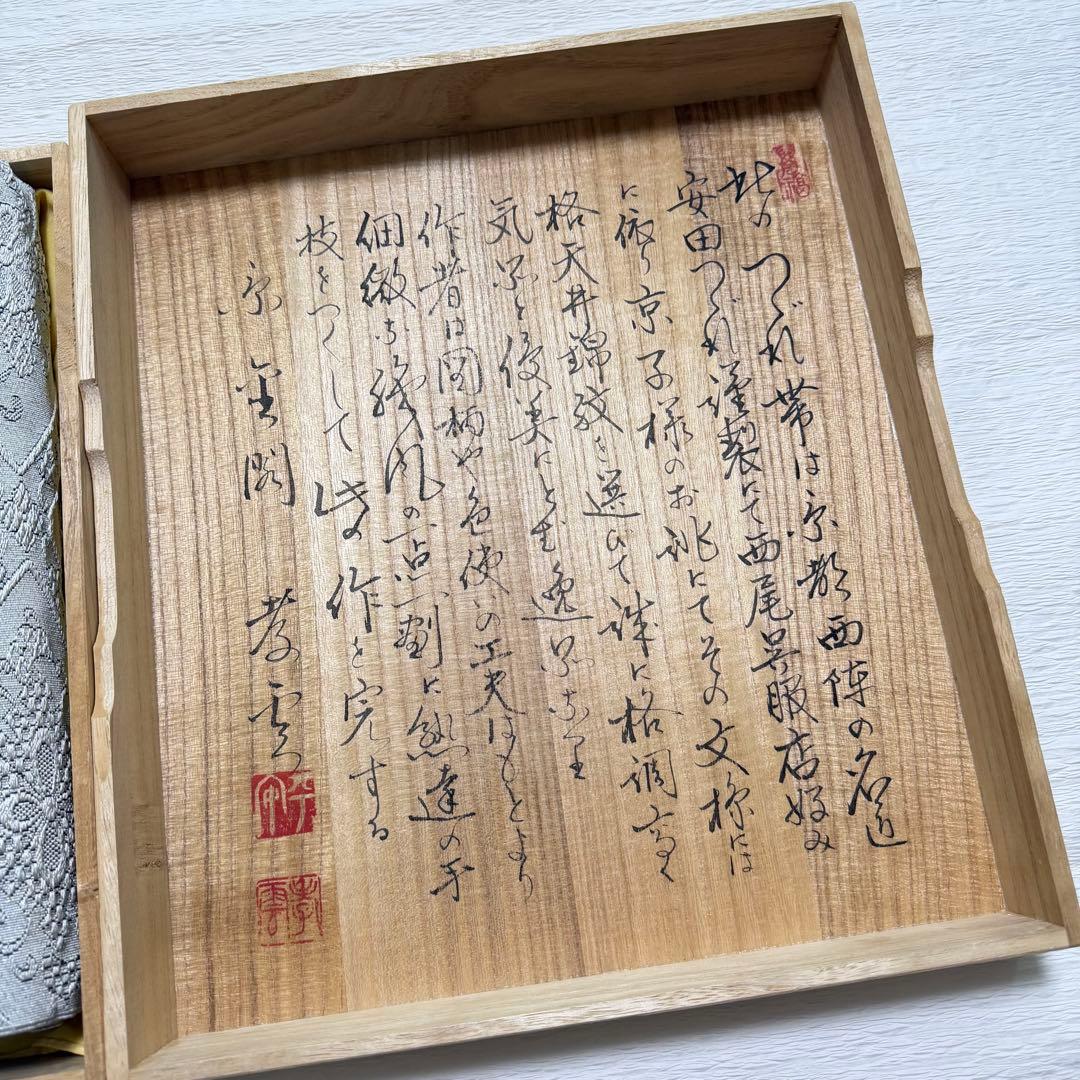 此のつづれ帯は京都西陣の名匠
安田つづれ謹製にて西尾呉服店好み
に依り京子様のお誂にてその文様には
格天井錦紋を選びて誠に格調高く
気品と優美にとむ逸品なり
作者は図柄や色使いの工夫はもとより
細微な機風の一点一劃に熟達の手
技をつくして此の作を完する
京 金閣 孝雲